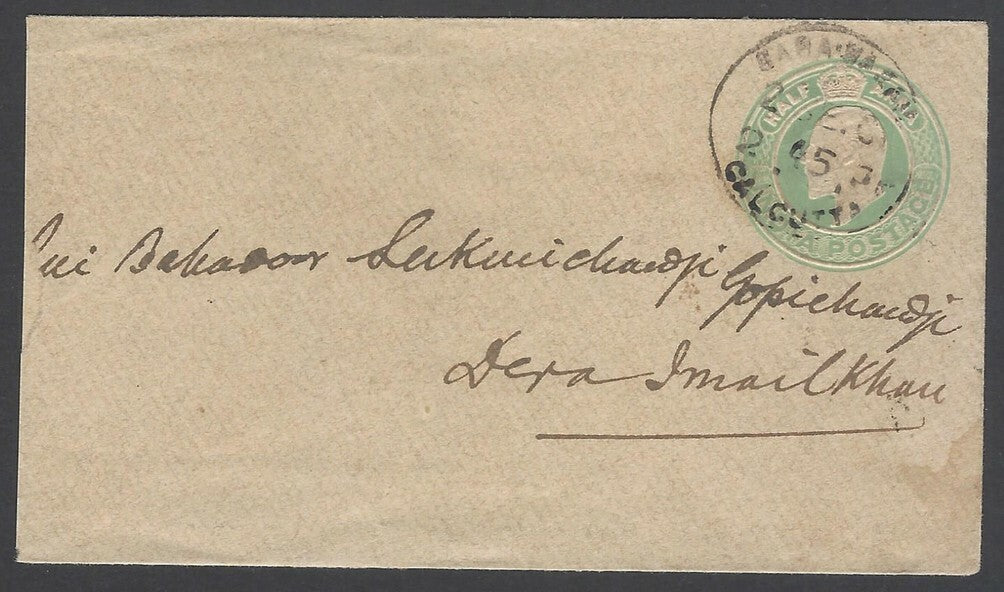 BARA-BAZAR
CALCUTTA
HALF ANNA
INDIA POSTAGE
Bahadoor Lukmichandji Gopichandji
Dera Imail Khan